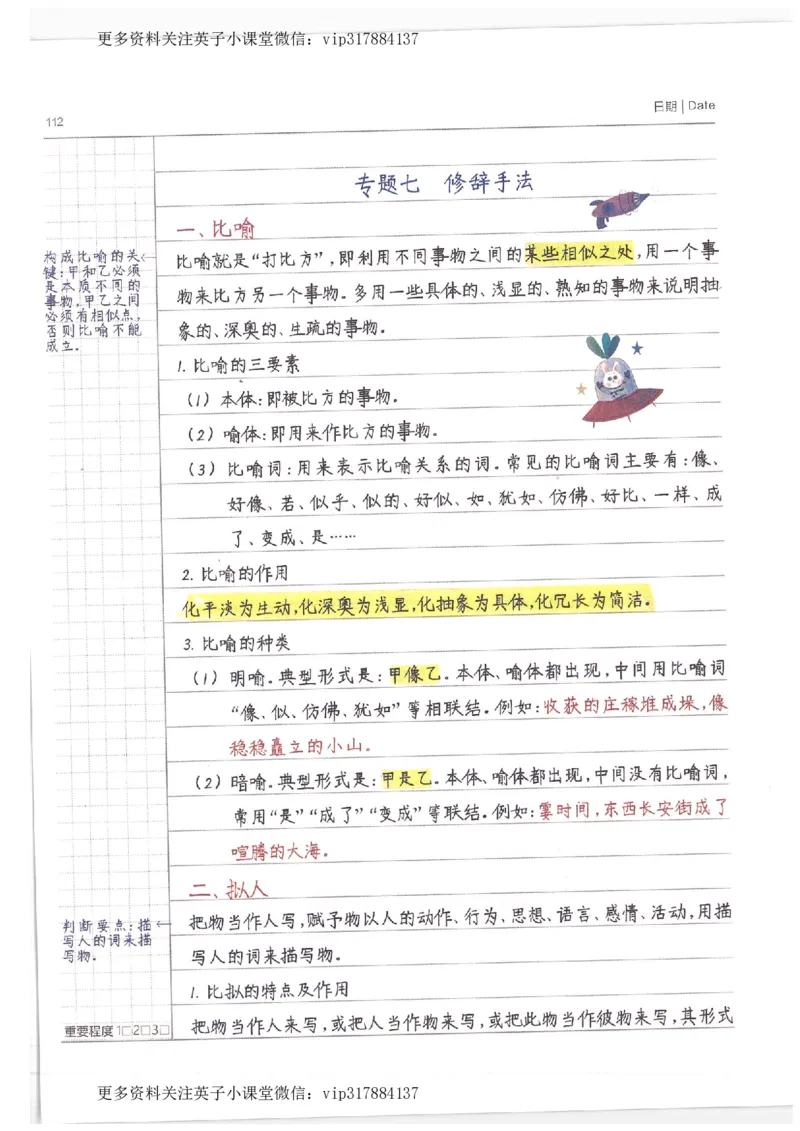 更多资料关注英子小课堂微信：vip317884137
日期 | Date
112
专题七 修辞手法
一、比喻
构成比喻的关
键：甲和乙必须
是本质不同的
事物，甲乙之间
必须有相似点，
否则比喻不能
成立。
比喻就是“打比方”，即利用不同事物之间的某些相似之处，用一个事
物来比方另一个事物。多用一些具体的、浅显的、熟知的事物来说明抽
象的、深奥的、生疏的事物。
1. 比喻的三要素
（1）本体：即被比方的事物。
（2）喻体：即用来作比方的事物。
（3）比喻词：用来表示比喻关系的词。常见的比喻词主要有：像、
好像、若、似乎、似的、好似、如、犹如、仿佛、好比、一样、成
了、变成、是……
2. 比喻的作用
化平淡为生动，化深奥为浅显，化抽象为具体，化冗长为简洁。
3. 比喻的种类
（1）明喻。典型形式是：甲像乙。本体、喻体都出现，中间用比喻词
“像、似、仿佛、犹如”等相联结。例如：收获的庄稼堆成垛，像
稳稳矗立的小山。
（2）暗喻。典型形式是：甲是乙。本体、喻体都出现，中间没有比喻词，
常用“是”“成了”“变成”等联结。例如：霎时间，东西长安街成了
喧腾的大海。
二、拟人
判断要点：描
写人的词来描
写物。
把物当作人写，赋予物以人的动作、行为、思想、语言、感情、活动，用描
写人的词来描写物。
1. 比拟的特点及作用
把物当作人来写，或把人当作物来写，或把此物当作彼物来写，其形式
重要程度 1□2□3□
更多资料关注英子小课堂微信：vip317884137